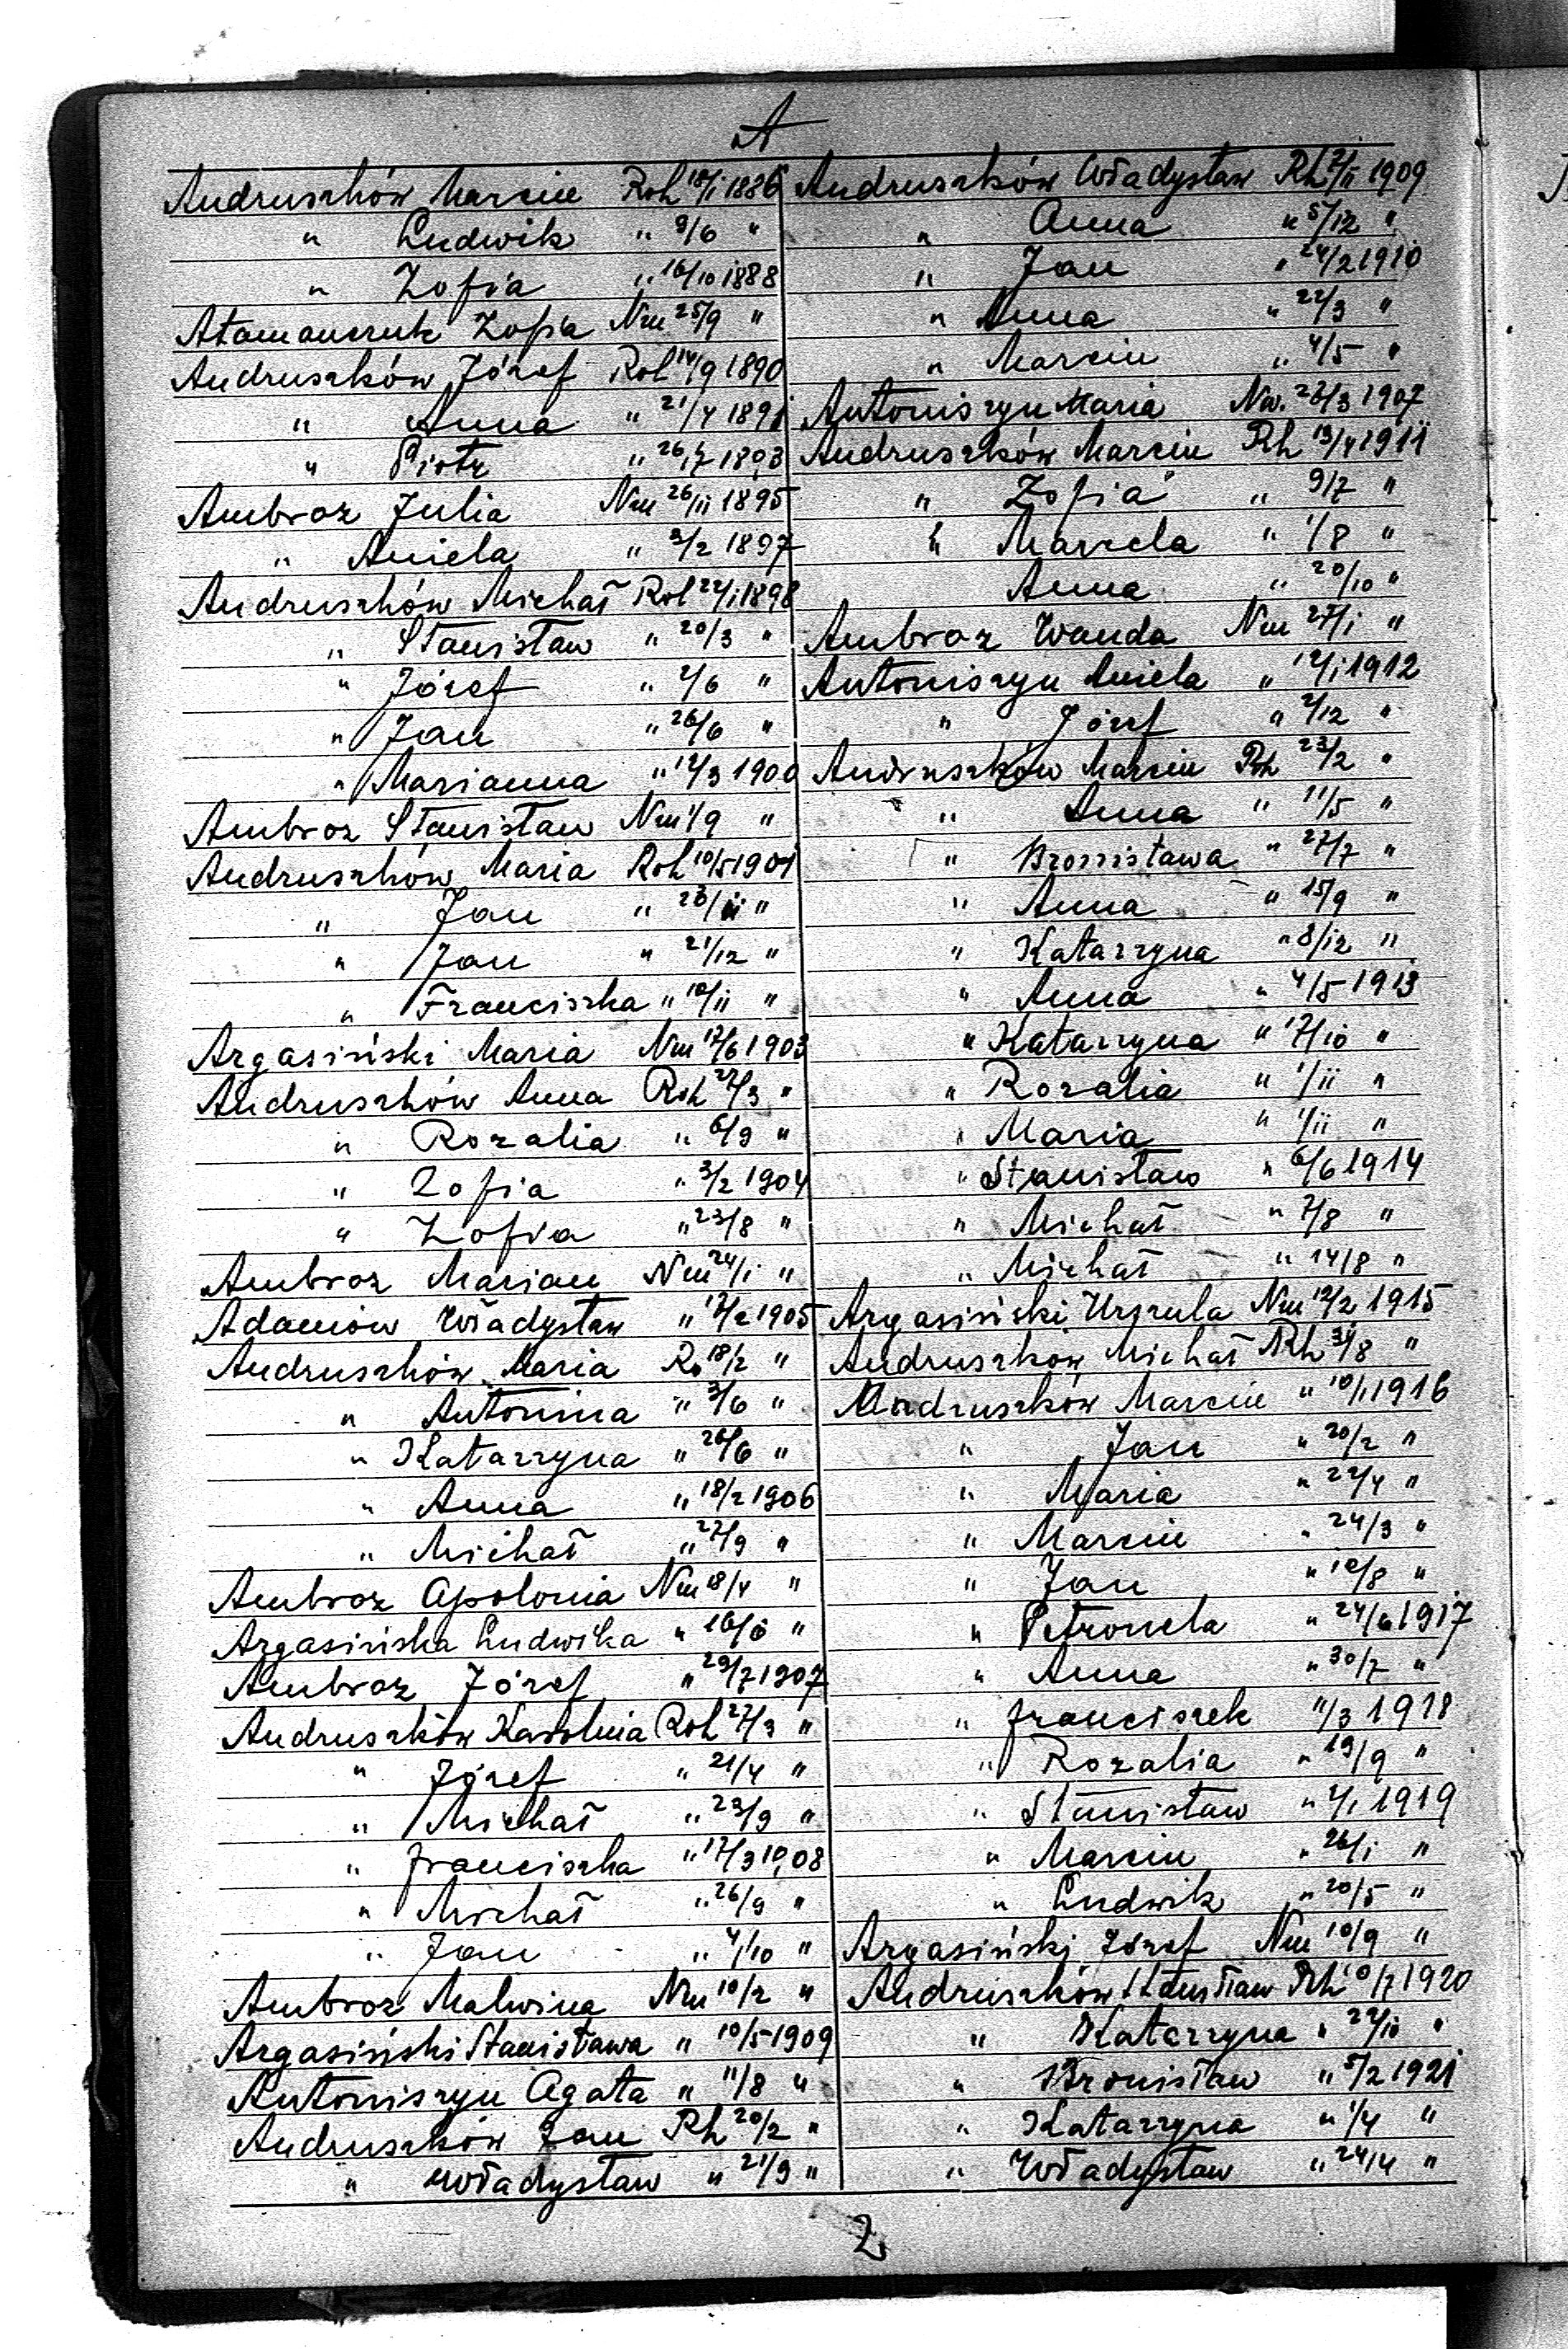 A
Andruszków Marcin Roh 18/1 1886
" Ludwik " 9/6 "
" Zofia " 16/10 1888
Atamanczuk Zofia Nm 25/9 "
Andruszków Józef Roh 14/9 1890
" Anna " 21/4 1891
" Piotr " 26/7 1893
Ambroz Julia Nm 26/11 1895
" Aniela " 2/2 1897
Andruszków Michał Roh 22/1 1898
" Stanisław " 20/3 "
" Józef " 2/6 "
" Jan " 26/6 "
" Marianna " 12/3 1900
Ambroz Stanisław Nm 1/9 "
Andruszków Maria Roh 10/5 1901
" Jan " 23/11 "
" Jan " 21/12 "
" Franciszka " 10/11 "
Argasiński Maria Nm 17/6 1903
Andruszków Anna Roh 27/3 "
" Rozalia " 6/9 "
" Zofia " 3/2 1904
" Zofia " 23/8 "
Ambroz Marian Nm 24/1 "
Adamów Władysław " 17/2 1905
Andruszków Maria Ro 18/2 "
" Antonina " 3/6 "
" Katarzyna " 26/6 "
" Anna " 18/2 1906
" Michał " 27/9 "
Ambroz Apolonia Nm 18/4 "
Argasińska Ludwika " 16/8 "
Ambroz Józef " 29/7 1907
Andruszków Karolina Roh 27/3 "
" Józef " 21/4 "
" Michał " 23/9 "
" Franciszka " 17/3 1908
" Michał " 26/9 "
" Jan " 4/10 "
Ambroz Malwina Nm 10/2 "
Argasiński Stanisława " 10/5 1909
Antoniszyn Agata " 11/8 "
Andruszków Jan Rh 20/2 "
" Władysław " 21/9 "
Andruszków Władysław Rh 21/11 1909
" Anna " 5/12 "
" Jan " 24/2 1910
" Anna " 22/3 "
" Marcin " 4/5 "
Antoniszyn Maria Nw. 23/3 1907
Andruszków Marcin Rh 13/4 1911
" Zofia " 9/7 "
" Marcela " 1/8 "
Anna " 20/10 "
Ambroz Wanda Nm 27/1 "
Antoniszyn Aniela " 12/1 1912
" Józef " 2/12 "
Andruszków Marcin Rh 23/2 "
" Anna " 11/5 "
" Bronisława " 27/7 "
" Anna " 15/9 "
" Katarzyna " 8/12 "
" Anna " 4/5 1913
" Katarzyna " 17/10 "
" Rozalia " 1/11 "
" Maria " 1/11 "
" Stanisław " 6/6 1914
" Michał " 7/8 "
" Michał " 14/8 "
Argasiński Urszula Nm 12/2 1915
Andruszków Michał Rh 31/8 "
Andruszków Marcin " 10/1 1916
" Jan " 20/2 "
" Maria " 22/4 "
" Marcin " 24/3 "
" Jan " 12/8 "
" Petronela " 24/6 1917
" Anna " 30/7 "
" Franciszek 11/3 1918
" Rozalia " 19/9 "
" Stanisław " 2/1 1919
" Marcin " 26/1 "
" Ludwik " 20/5 "
Argasiński Józef Nm 10/9 "
Andruszków Stanisław Rh 10/7 1920
" Katarzyna " 22/10 "
" Bronisław " 5/2 1921
" Katarzyna " 1/4 "
" Władysław " 24/4 "
2